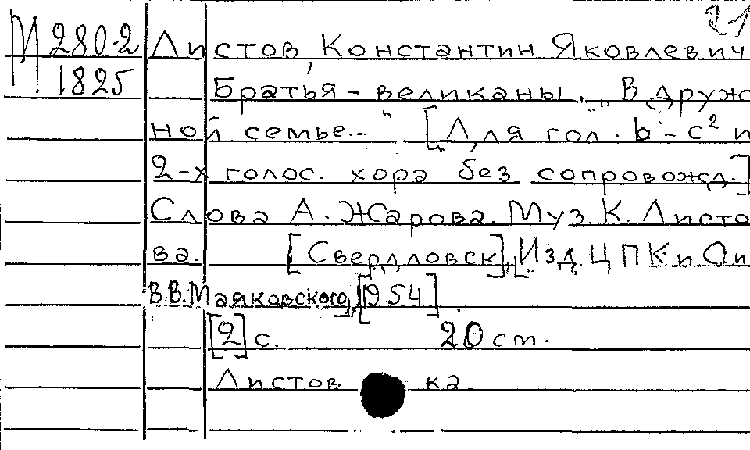 М 280-2 Листов, Константин Яковлевич
1825 Братья - великаны. "В друж
ной семье..." [Для гол. b - c² и
2-х голос. хора без сопровожд.]
Слова А. Жарова. Муз. К. Листо
ва. [Свердловск], Изд. ЦПКиОи
В.В. Маяковского, [1954].
[2] с. 20 см.
Листов ка.